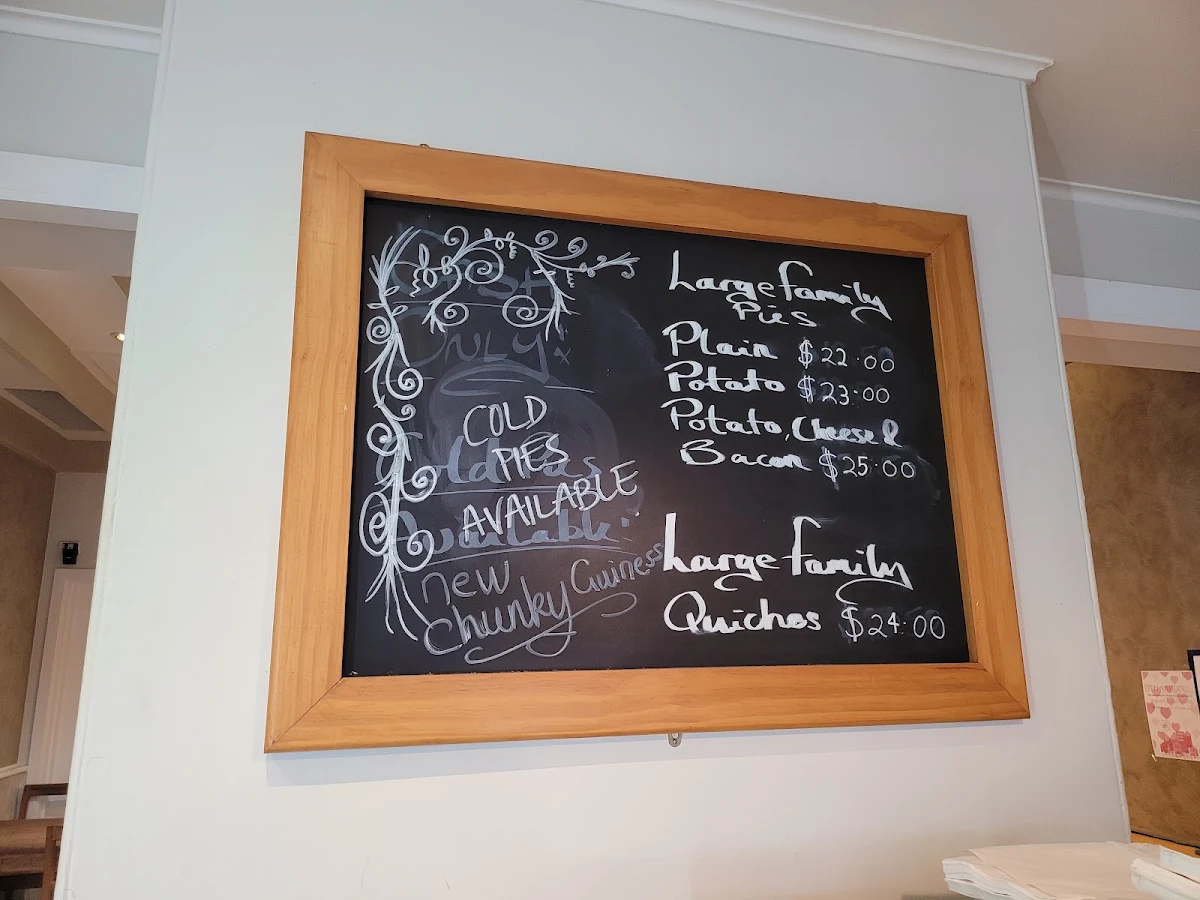 COLD
PIES
AVAILABLE
new
chunky Guiness
Large family
Pies
Plain $22.00
Potato $23.00
Potato, Cheese &
Bacon $25.00
Large family
Quiches $24.00